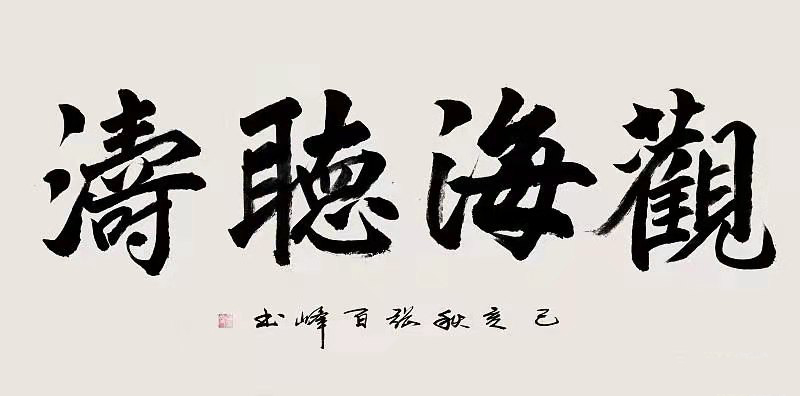 觀海聽濤
己亥秋張百峰书